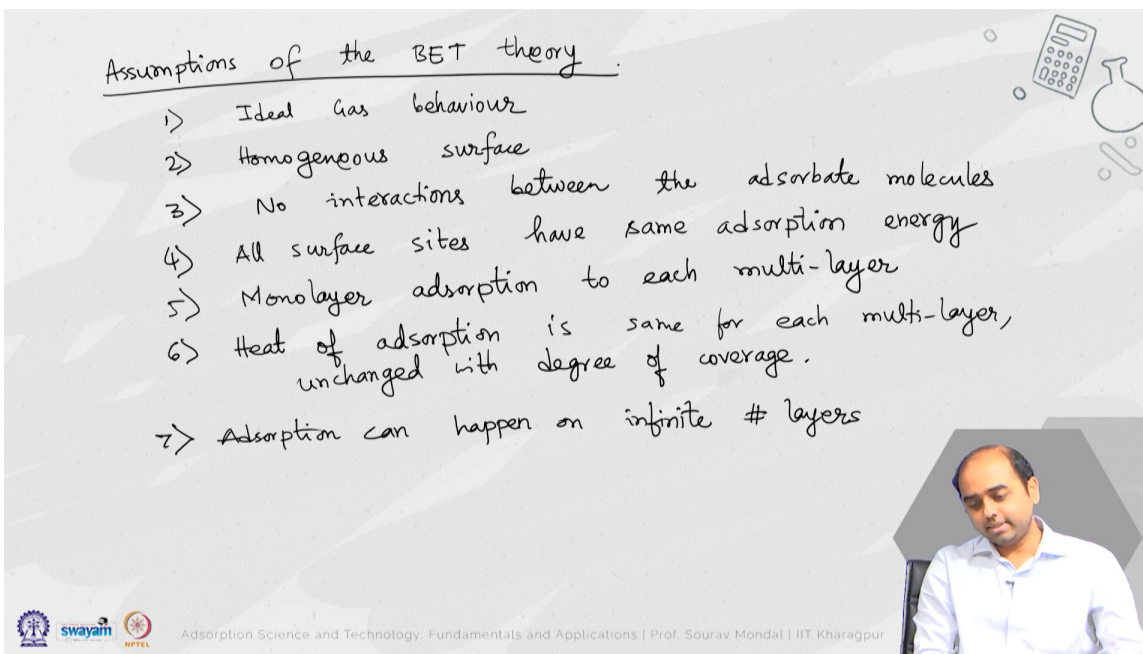 Assumptions of the BET theory.
1) Ideal Gas behaviour
2) Homogeneous surface
3) No interactions between the adsorbate molecules
4) All surface sites have same adsorption energy
5) Monolayer adsorption to each multi-layer
6) Heat of adsorption is same for each multi-layer,
unchanged with degree of coverage.
7) Adsorption can happen on infinite # layers
swayam
NPTEL
Adsorption Science and Technology: Fundamentals and Applications | Prof. Sourav Mondal | IIT Kharagpur